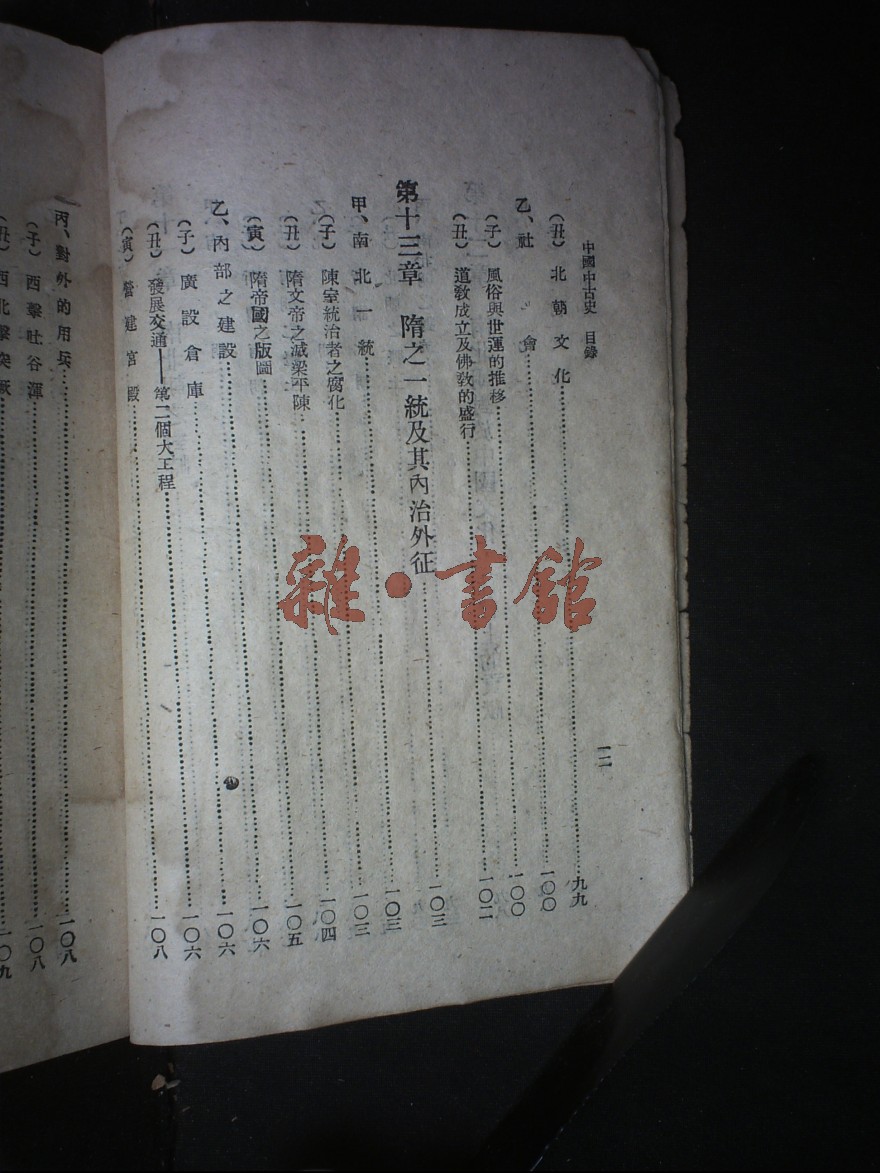 中國中古史 目錄 一二
(丑)北朝文化……九九
乙、社會……一〇〇
(子)風俗與世運的推移……一〇〇
(丑)道教成立及佛教的盛行……一〇二
第十三章 隋之一統及其內治外征……一〇三
甲、南北一統……一〇三
(子)陳室統治者之腐化……一〇三
(丑)隋文帝之滅梁平陳……一〇四
(寅)隋帝國之版圖……一〇五
乙、內部之建設……一〇六
(子)廣設倉庫……一〇六
(丑)發展交通——第二個大工程……一〇六
(寅)營建宮殿……一〇八
丙、對外的用兵……一〇八
(子)西擊吐谷渾……一〇八
(丑)西北擊突厥……一〇九
雜·書館